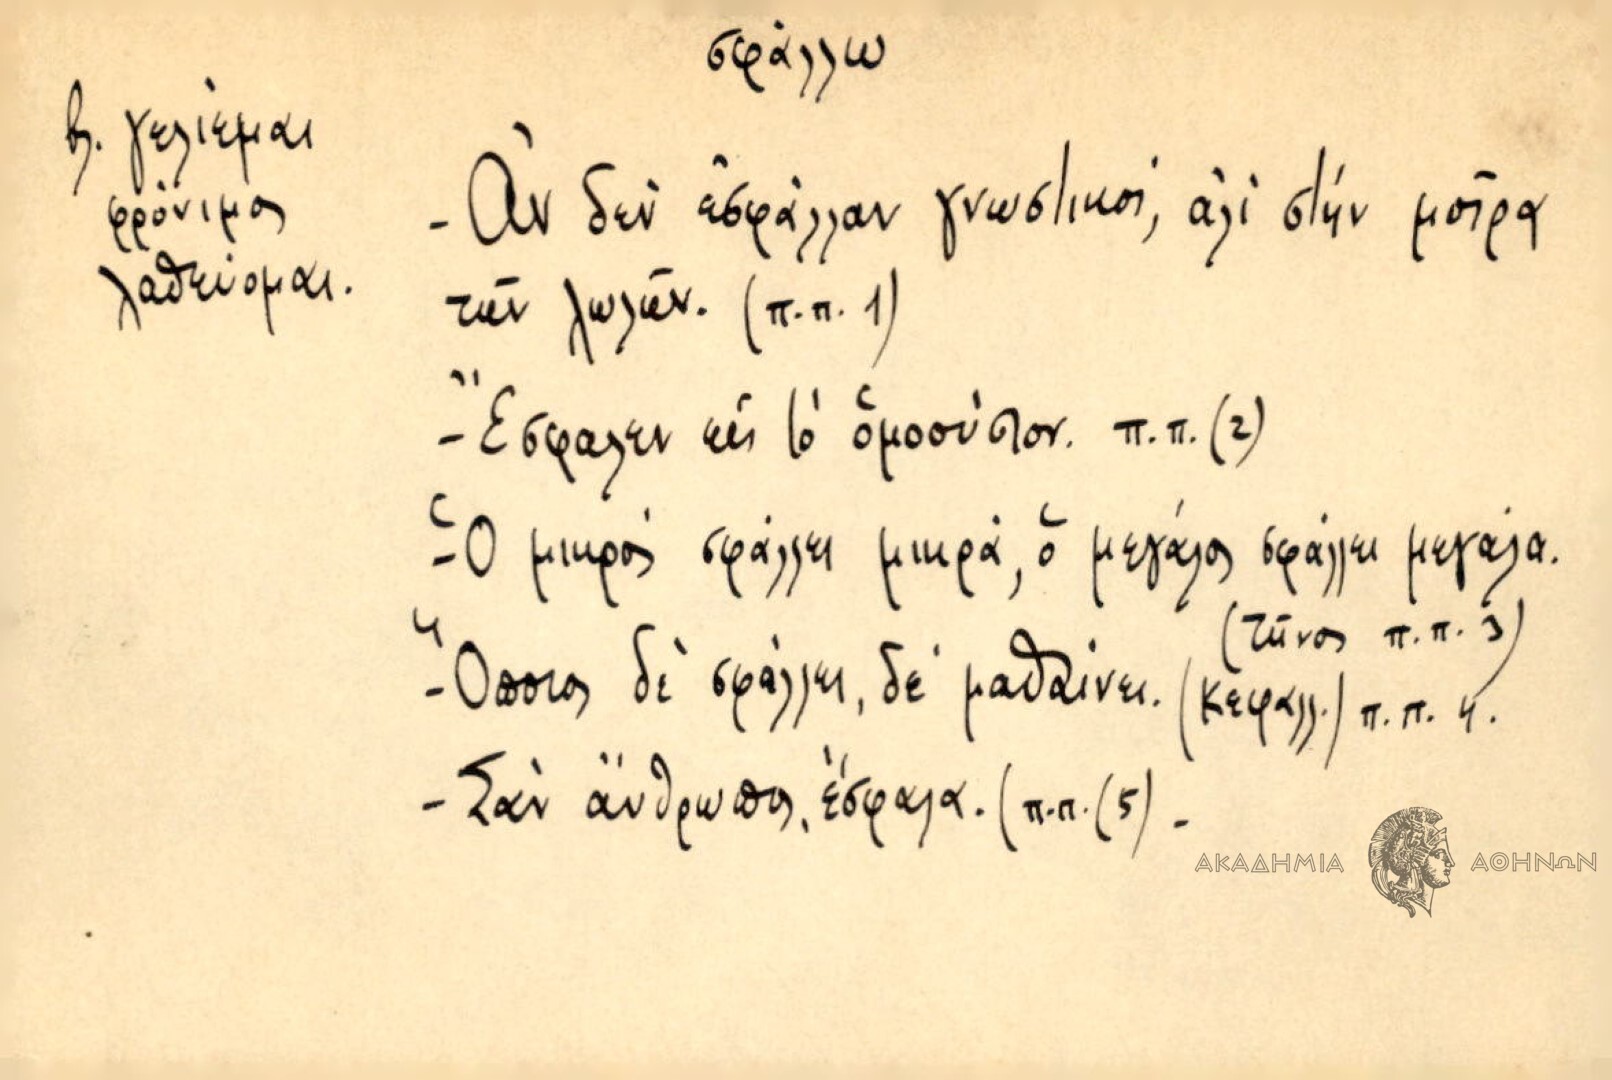 σφάλλω
βλ. γελιέμαι
φρόνιμος
λαθεύομαι.
- Ἂν δὲν ἐσφάλλαν γνωστικοί, ἀλὶ στὴν μοῖρα
τῶν λωλῶν. (π.π. 1)
- Ἔσφαλεν εἰς τὸ ὁμοούσιον. π.π. (2)
- Ὁ μικρὸς σφάλλει μικρά, ὁ μεγάλος σφάλλει μεγάλα.
(Τῆνος π.π. 3)
- Ὅποιος δὲ σφάλλει, δὲ μαθαίνει. (Κεφαλλ.) π.π. 4.
- Σὰν ἄνθρωπος, ἔσφαλα. (π.π. (5) -
ΑΚΑΔΗΜΙΑ ΑΘΗΝΩΝ